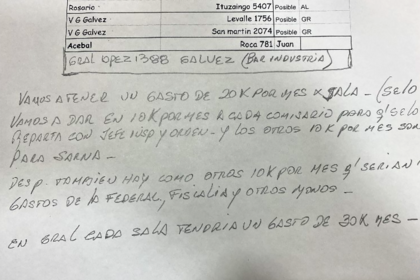 Rosario Ituzaingo 5407 Posible AL
V G Galvez Levalle 1756 Posible GR
V G Galvez San martin 2074 Posible GR
Acebal Roca 781 Juan
GRAL LOPEZ 1388 GALVEZ (BAR INDUSTRIA)
VAMOS A TENER UN GASTO DE 20K POR MES X SALA - (SELO
VAMOS A DAR EN 10K POR MES A CADA COMISARIO PARA q' SELO
REPARTA CON JEFE INSP Y ORDEN - Y LOS OTROS 10K POR MES SON
PARA SARNA -
DESP. TAMBIEN HAY COMO OTROS 10K POR MES q' SERIAN
GASTOS DE LA FEDERAL, FISCALIA Y OTROS MONOS -
EN GRAL CADA SALA TENDRIA UN GASTO DE 30K MES -